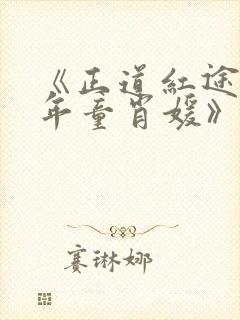 《正道紅途
年童肖媛》
赛琳娜